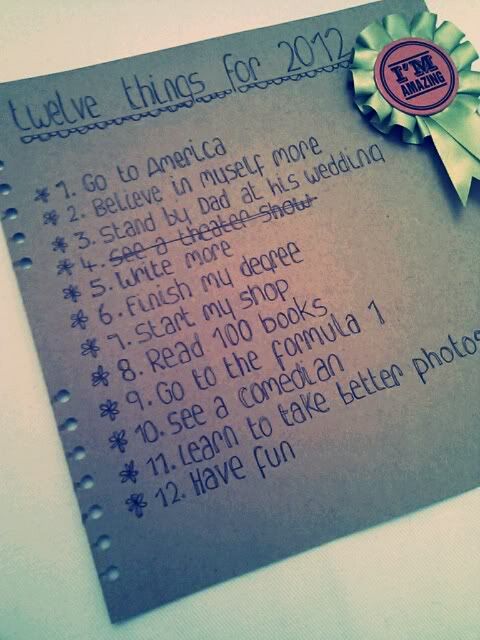 twelve things for 2012
I'M
AMAZING
1. Go to America
2. Believe in myself more
3. Stand by Dad at his wedding
4. See a theater show
5. Write more
6. Finish my degree
7. Start my shop
8. Read 100 books
9. Go to the formula 1
10. See a comedian
11. Learn to take better photos
12. Have fun